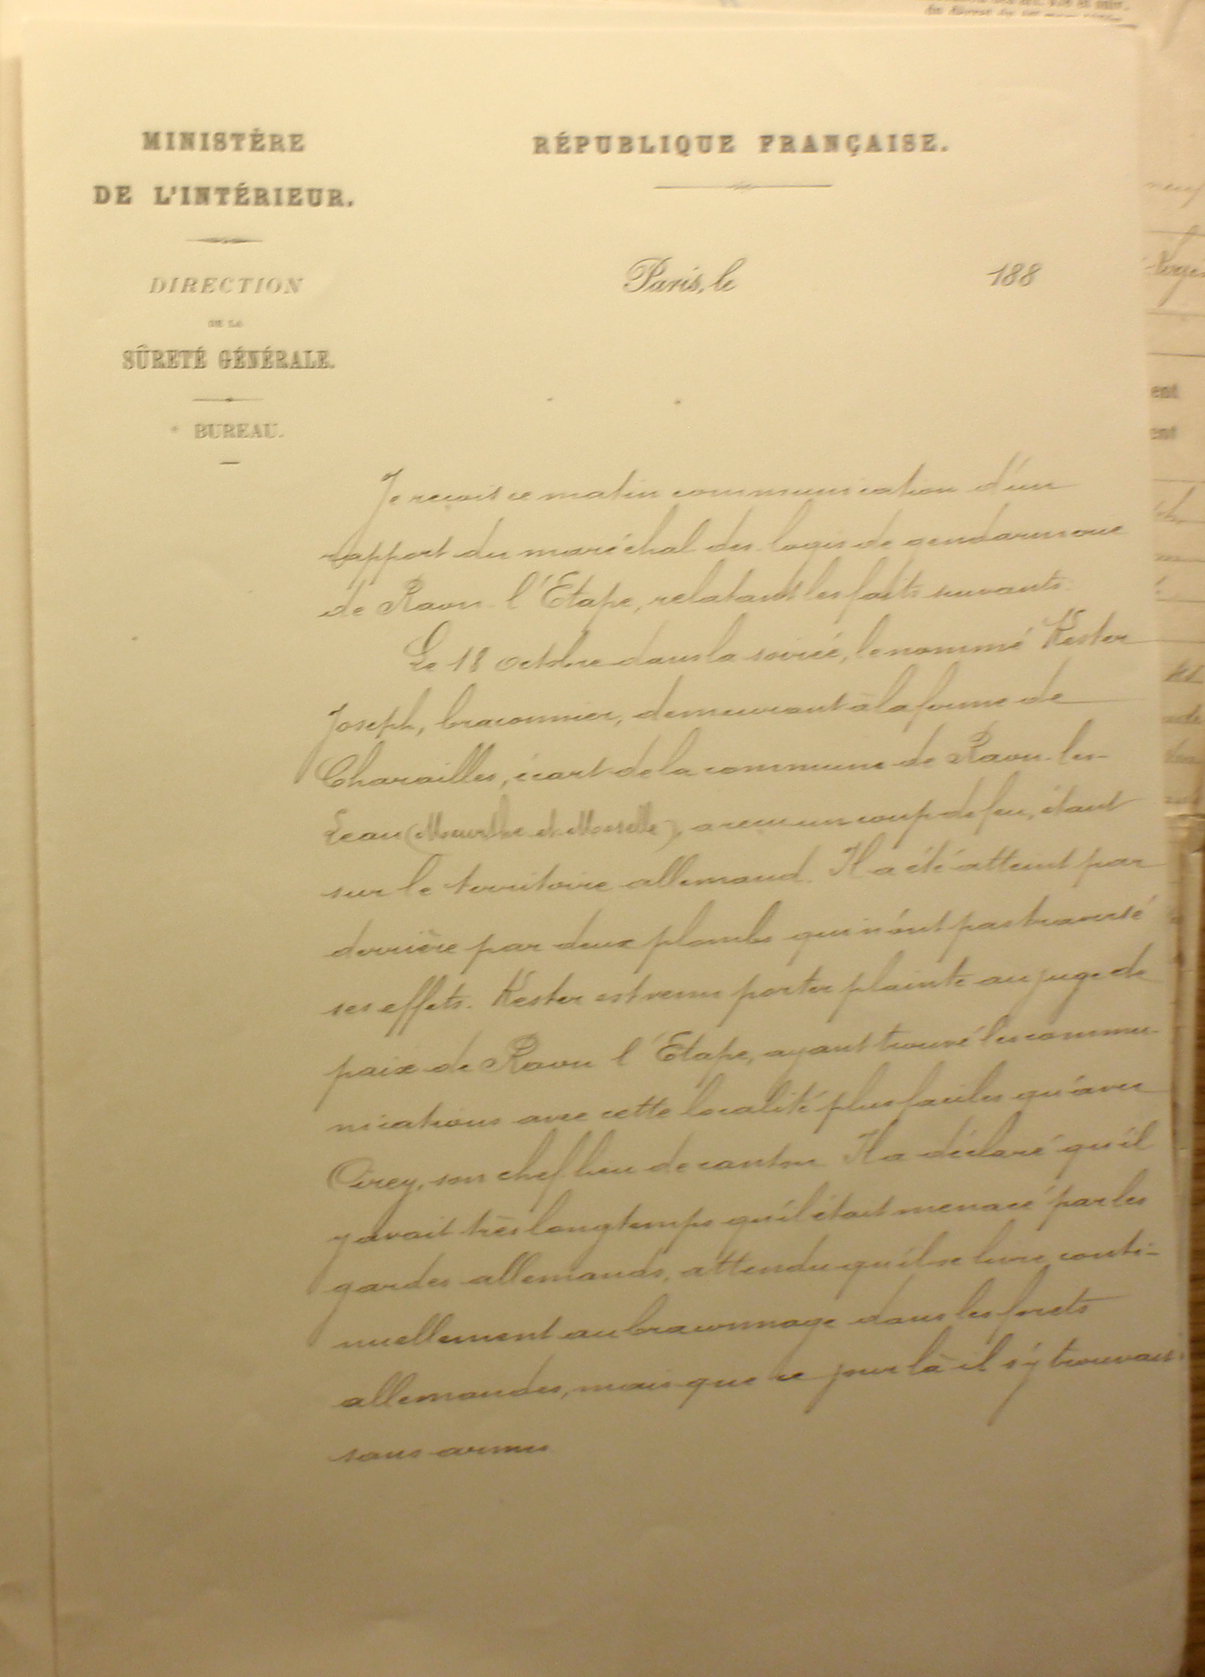 MINISTÈRE
DE L'INTÉRIEUR.
DIRECTION
DE LA
SÛRETÉ GÉNÉRALE.
BUREAU.
RÉPUBLIQUE FRANÇAISE.
Paris, le 188
Je reçois ce matin communication d'un
rapport du maréchal des logis de gendarmerie
de Raon l'Etape, relatant les faits suivants:
Le 18 octobre dans la soirée, le nommé Kester
Joseph, braconnier, demeurant à la ferme de
Charailles, écart de la commune de Raon-les-
Leau (Meurthe et Moselle), a reçu un coup de feu, étant
sur le territoire allemand. Il a été atteint par
derrière par deux plombs qui n'ont pas traversé
ses effets. Kester est venu porter plainte au juge de
paix de Raon l'Etape, ayant trouvé les commu-
nications avec cette localité plus faciles qu'avec
Cirey, son chef lieu de canton. Il a déclaré qu'il
y avait très longtemps qu'il était menacé par les
gardes allemands, attendu qu'il se livre conti-
nuellement au braconnage dans les forêts
allemandes, mais que ce jour là il s'y trouvait
sans armes